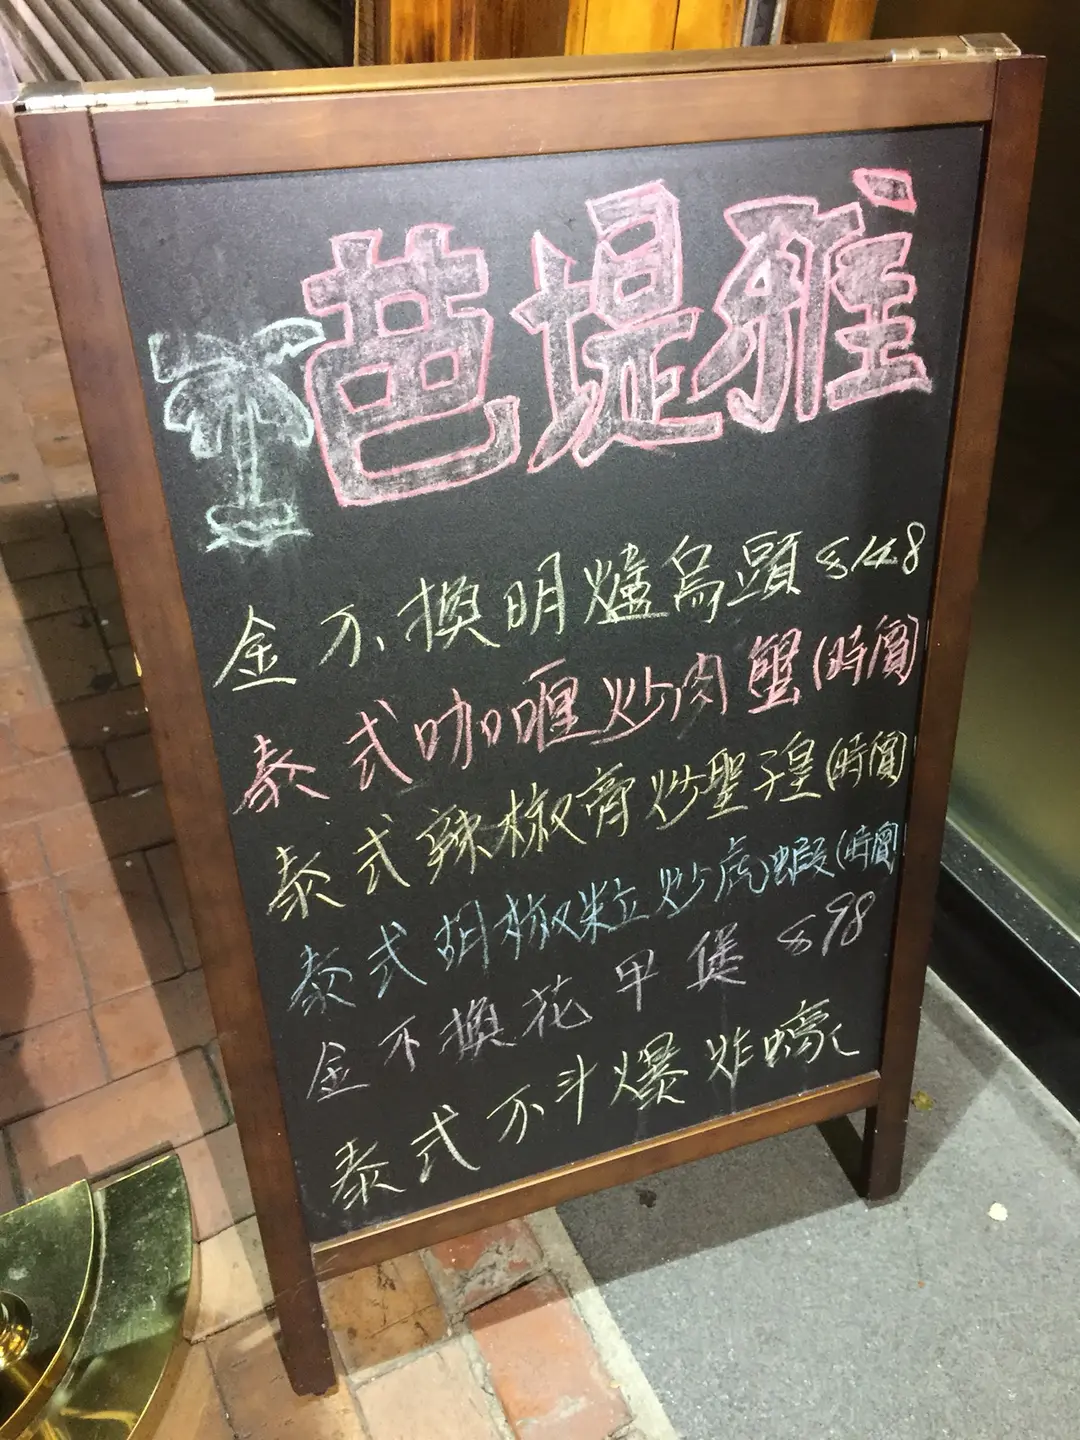 芭堤雅
金不換明爐烏頭 $148
泰式咖喱炒肉蟹(時價)
泰式辣椒膏炒聖子皇(時價)
泰式胡椒粒炒虎蝦(時價)
金不換花甲煲 $98
泰式不斗爆炸蠔